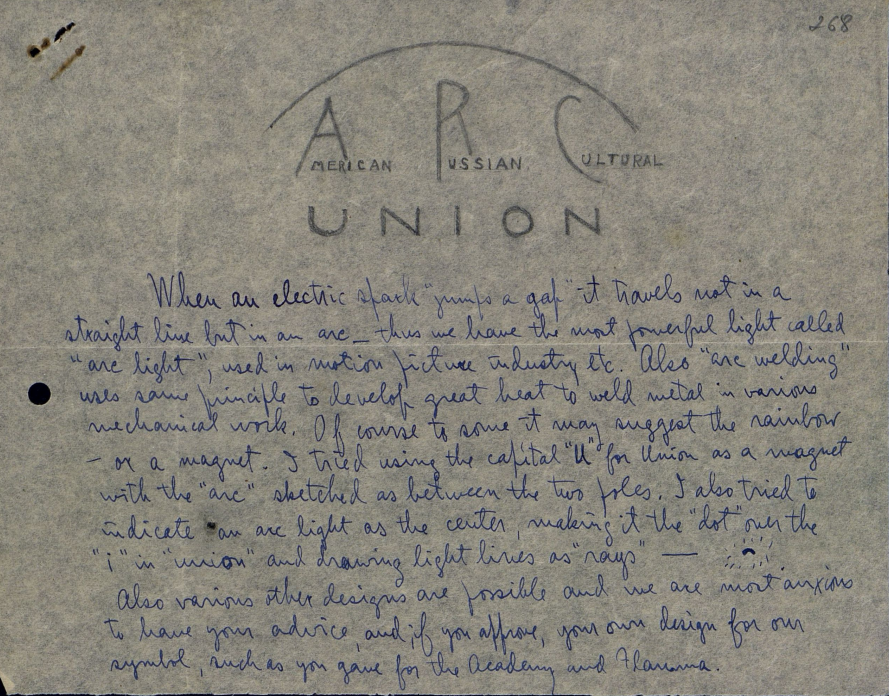 268
A R C
AMERICAN RUSSIAN CULTURAL
UNION
When an electric spark "jumps a gap" it travels not in a
straight line but in an arc — thus we have the most powerful light called
"arc light", used in motion picture industry etc. Also "arc welding"
uses same principle to develop great heat to weld metal in various
mechanical work. Of course to some it may suggest the rainbow
— or a magnet. I tried using the capital "U" for Union as a magnet
with the "arc" sketched as between the two poles. I also tried to
indicate an arc light as the center, making it the "dot" over the
"i" in "union" and drawing light lines as "rays" —
Also various other designs are possible and we are most anxious
to have your advice, and, if you approve, your own design for our
symbol, such as you gave for the Academy and Flamma.